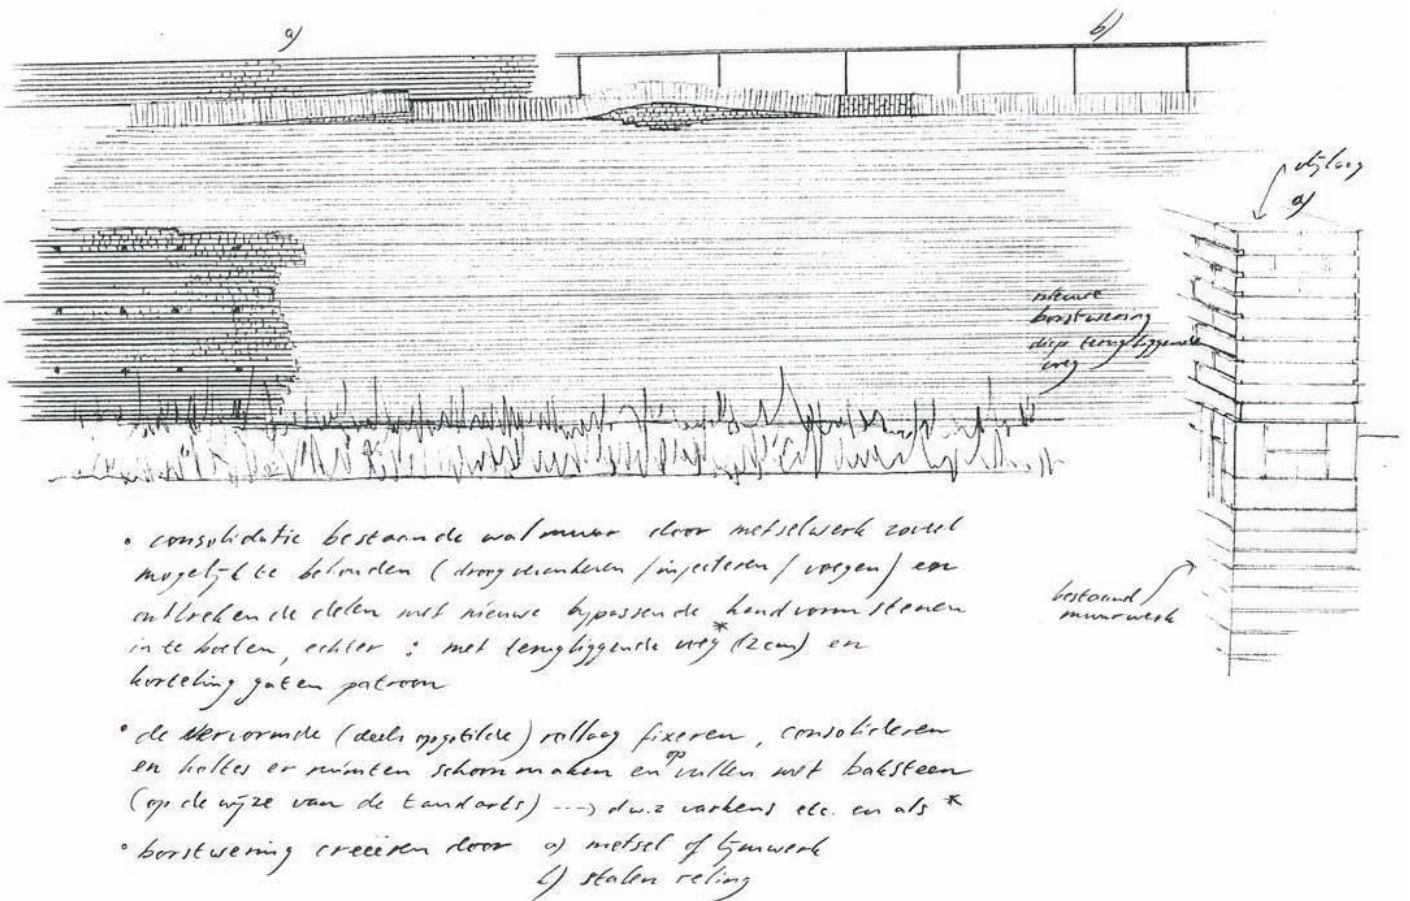 a)
b)
vlijlaag
a)
nieuwe
borstwering
diep terugliggende
voeg
bestaand
muurwerk
• consolidatie bestaande walmuur door metselwerk zoveel
mogelijk te behouden (droog verankeren / injecteren / voegen) en
ontbrekende delen met nieuwe bijpassende handvorm stenen
in te boeten, echter : met terugliggende voeg* (2cm) en
korteling gaten patroon
• de vervormde (deels opgetilde) rollaag fixeren, consolideren
en holtes en ruimten schoonmaken en opvullen met baksteen
(op de wijze van de tandarts) ---> d.w.z varkens etc. en als *
• borstwering creëren door a) metsel of lijmwerk
b) stalen reling